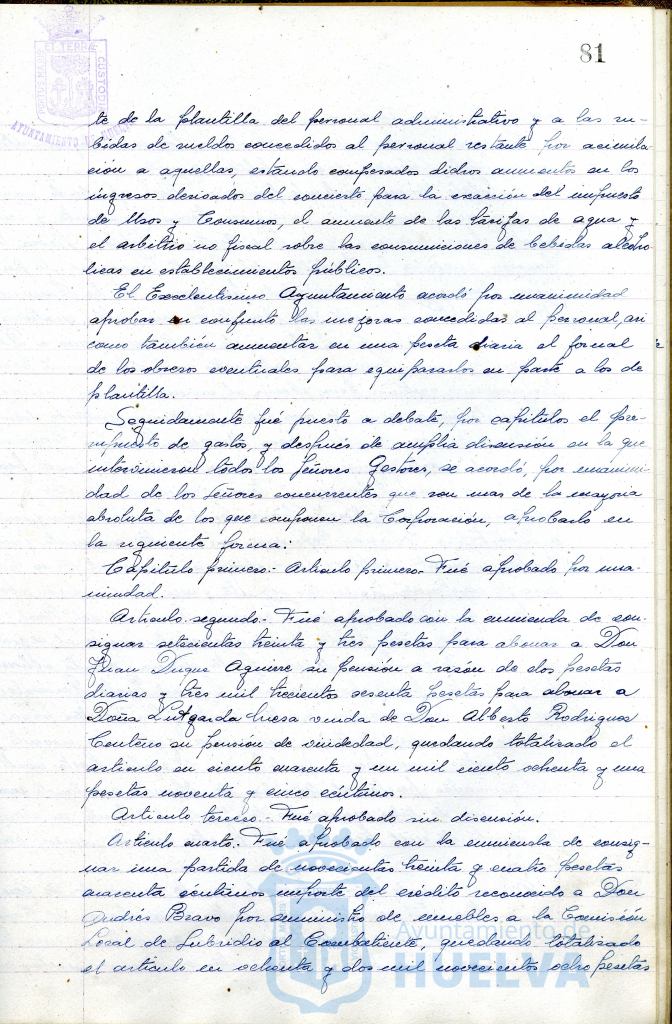 81
EL TERRAE CUSTODIA
AYUNTAMIENTO
te de la plantilla del personal administrativo y a las su-
bidas de sueldos concedidos al personal restante por asimila-
ción a aquellas, estando compesados dichos aumentos en los
ingresos derivados del concierto para la exacción del impuesto
de Usos y Consumos, el aumento de las tarifas de agua y
el arbitrio no fiscal sobre las consumiciones de bebidas alcohó-
licas en establecimientos públicos.
El Excelentísimo Ayuntamiento acordó por unanimidad
aprobar en conjunto las mejoras concedidas al personal, asi
como también aumentar en una peseta diaria el jornal
de los obreros eventuales para equipararlos en parte a los de
plantilla.
Seguidamente fué puesto a debate, por capítulos el pre-
supuesto de gastos, y después de amplia discusión en la que
intervinieron todos los Señores Gestores, se acordó, por unanimi-
dad de los Señores concurrentes que son mas de la mayoria
absoluta de los que componen la Corporación, aprobarlo en
la siguiente forma:
Capítulo primero.- Articulo primero- Fué aprobado por una-
nimidad.
Articulo segundo- Fué aprobado con la enmienda de con-
signar setecientas treinta y tres pesetas para abonar a Don
Juan Duque Aguirre su pensión a razón de dos pesetas
diarias y tres mil trecientos sesenta pesetas para abonar a
Doña Lutgarda viuda de Don Alberto Rodriguez
Centeno su pension de viudedad, quedando totalizado el
articulo en ciento cuarenta y un mil ciento ochenta y una
pesetas noventa y cinco céntimos.
Articulo tercero.- Fué aprobado sin discusión.
Articulo cuarto.- Fué aprobado con la enmienda de consig-
nar una partida de novecientas treinta y cuatro pesetas
cuarenta céntimos importe del crédito reconocido a Don
Andrés Bravo por suministro de muebles a la Comisión
Local de Subsidio al Combatiente, quedando totalizado
el articulo en ochenta y dos mil novecientos ocho pesetas
Ayuntamiento de
HUELVA